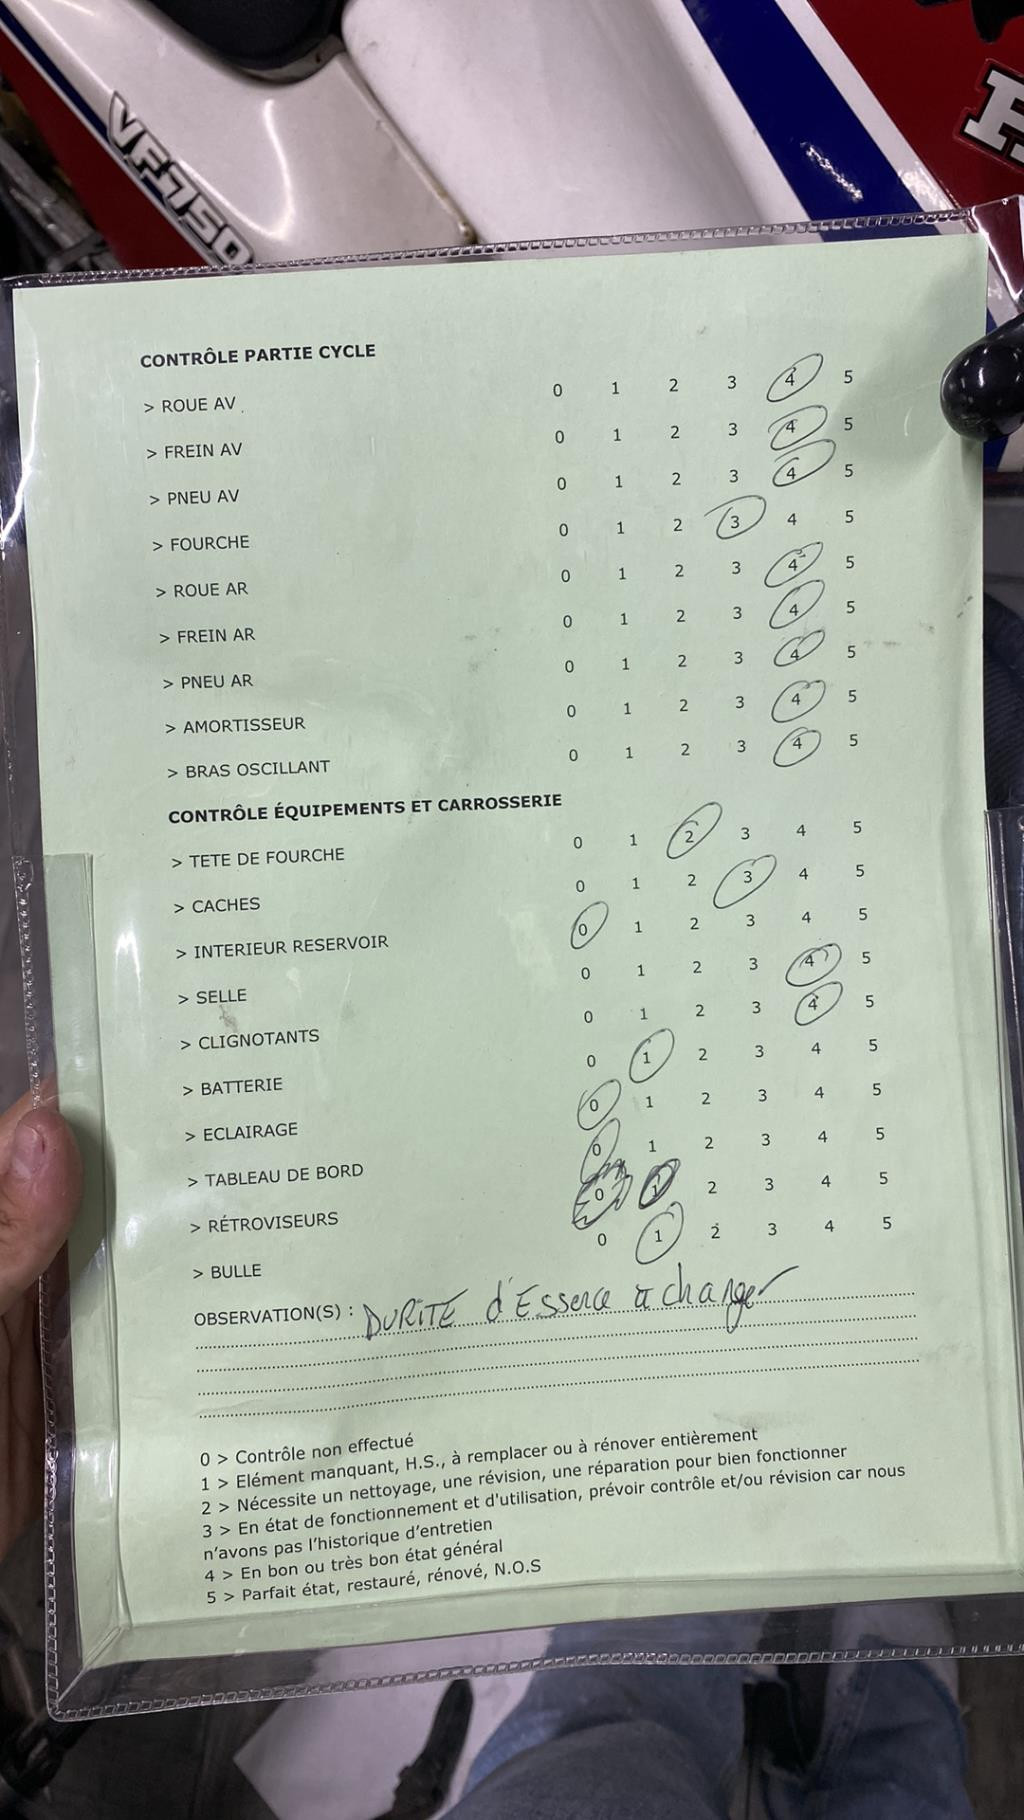 VF750
CONTRÔLE PARTIE CYCLE
> ROUE AV 0 1 2 3 4 5
> FREIN AV 0 1 2 3 4 5
> PNEU AV 0 1 2 3 4 5
> FOURCHE 0 1 2 3 4 5
> ROUE AR 0 1 2 3 4 5
> FREIN AR 0 1 2 3 4 5
> PNEU AR 0 1 2 3 4 5
> AMORTISSEUR 0 1 2 3 4 5
> BRAS OSCILLANT 0 1 2 3 4 5
CONTRÔLE ÉQUIPEMENTS ET CARROSSERIE
> TETE DE FOURCHE 0 1 2 3 4 5
> CACHES 0 1 2 3 4 5
> INTERIEUR RESERVOIR 0 1 2 3 4 5
> SELLE 0 1 2 3 4 5
> CLIGNOTANTS 0 1 2 3 4 5
> BATTERIE 0 1 2 3 4 5
> ECLAIRAGE 0 1 2 3 4 5
> TABLEAU DE BORD 0 1 2 3 4 5
> RÉTROVISEURS 0 1 2 3 4 5
> BULLE 0 1 2 3 4 5
OBSERVATION(S) : DURITE d'Essence à changer
0 > Contrôle non effectué
1 > Elément manquant, H.S., à remplacer ou à rénover entièrement
2 > Nécessite un nettoyage, une révision, une réparation pour bien fonctionner
3 > En état de fonctionnement et d'utilisation, prévoir contrôle et/ou révision car nous
n'avons pas l'historique d'entretien
4 > En bon ou très bon état général
5 > Parfait état, restauré, rénové, N.O.S